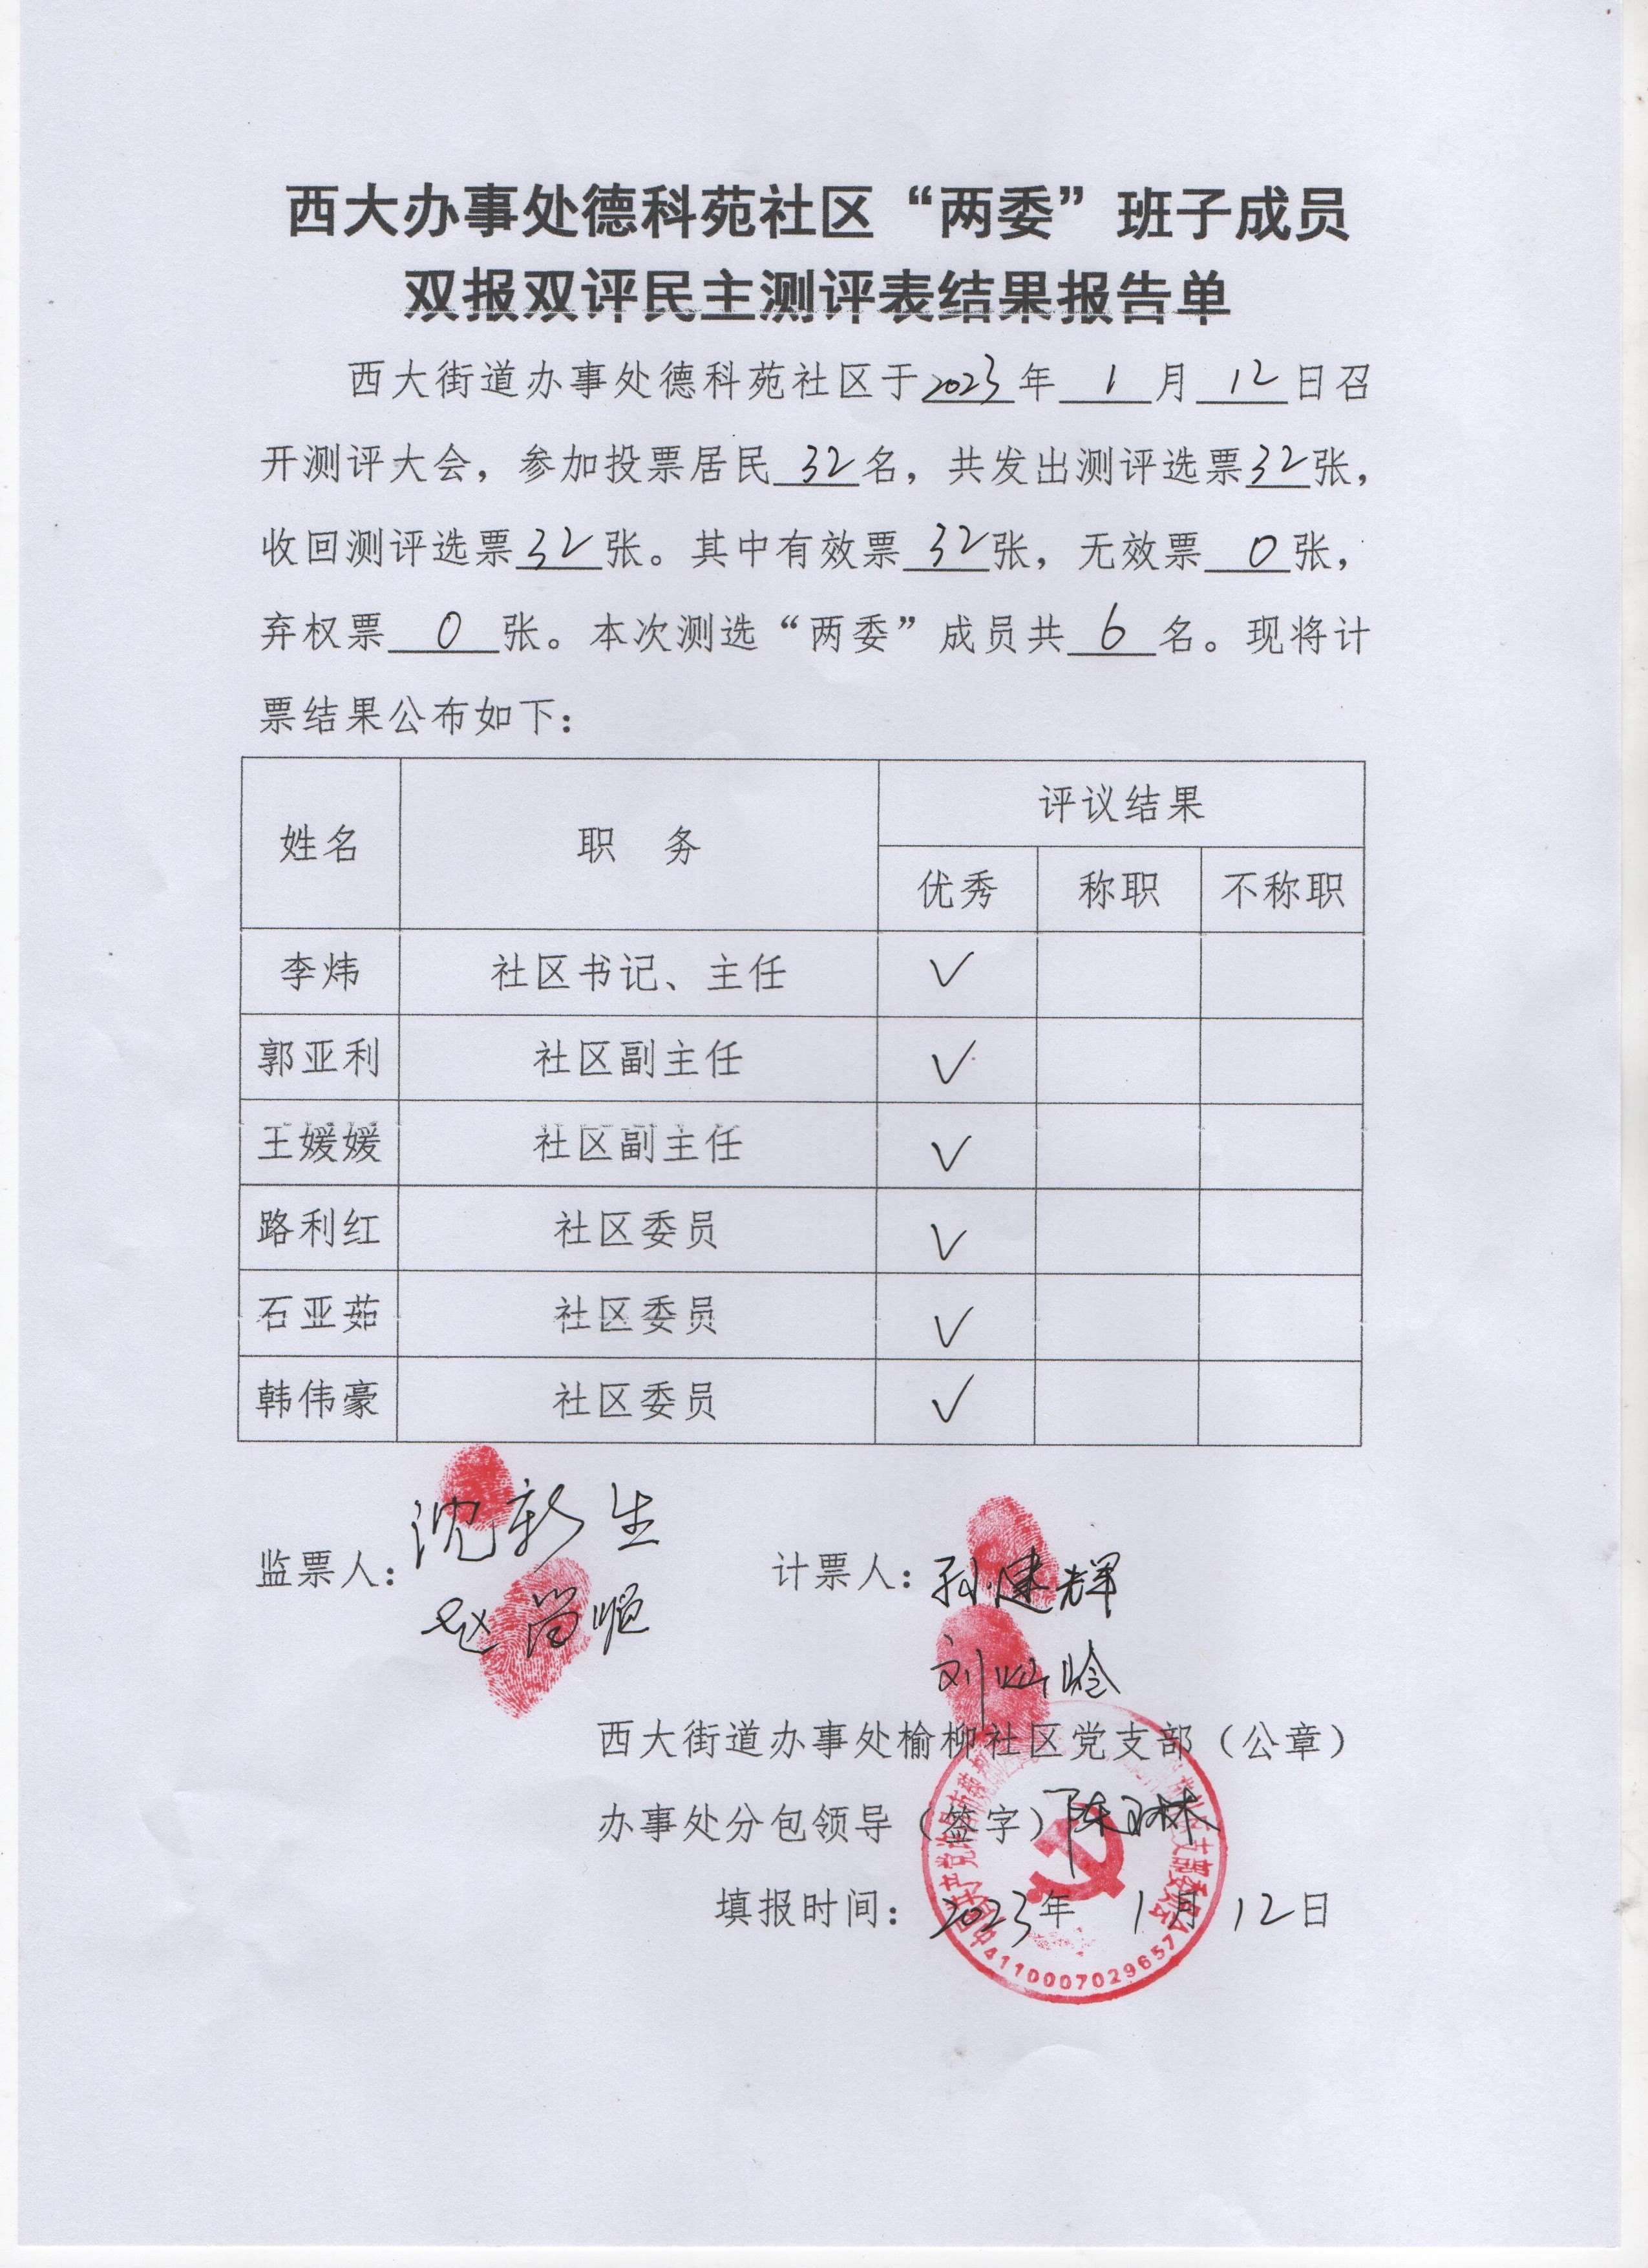 西大办事处德科苑社区“两委”班子成员
双报双评民主测评表结果报告单
西大街道办事处德科苑社区于2023年1月12日召
开测评大会，参加投票居民32名，共发出测评选票32张，
收回测评选票32张。其中有效票32张，无效票0张，
弃权票0张。本次测选“两委”成员共6名。现将计
票结果公布如下：
姓名 职 务 评议结果
优秀 称职 不称职
李炜 社区书记、主任 ✓
郭亚利 社区副主任 ✓
王媛媛 社区副主任 ✓
路利红 社区委员 ✓
石亚茹 社区委员 ✓
韩伟豪 社区委员 ✓
监票人：沈新生 计票人：孙建辉
赵尚顺
西大街道办事处榆柳社区党支部（公章）
办事处分包领导（签字）
填报时间：2023年1月12日
4110007029657